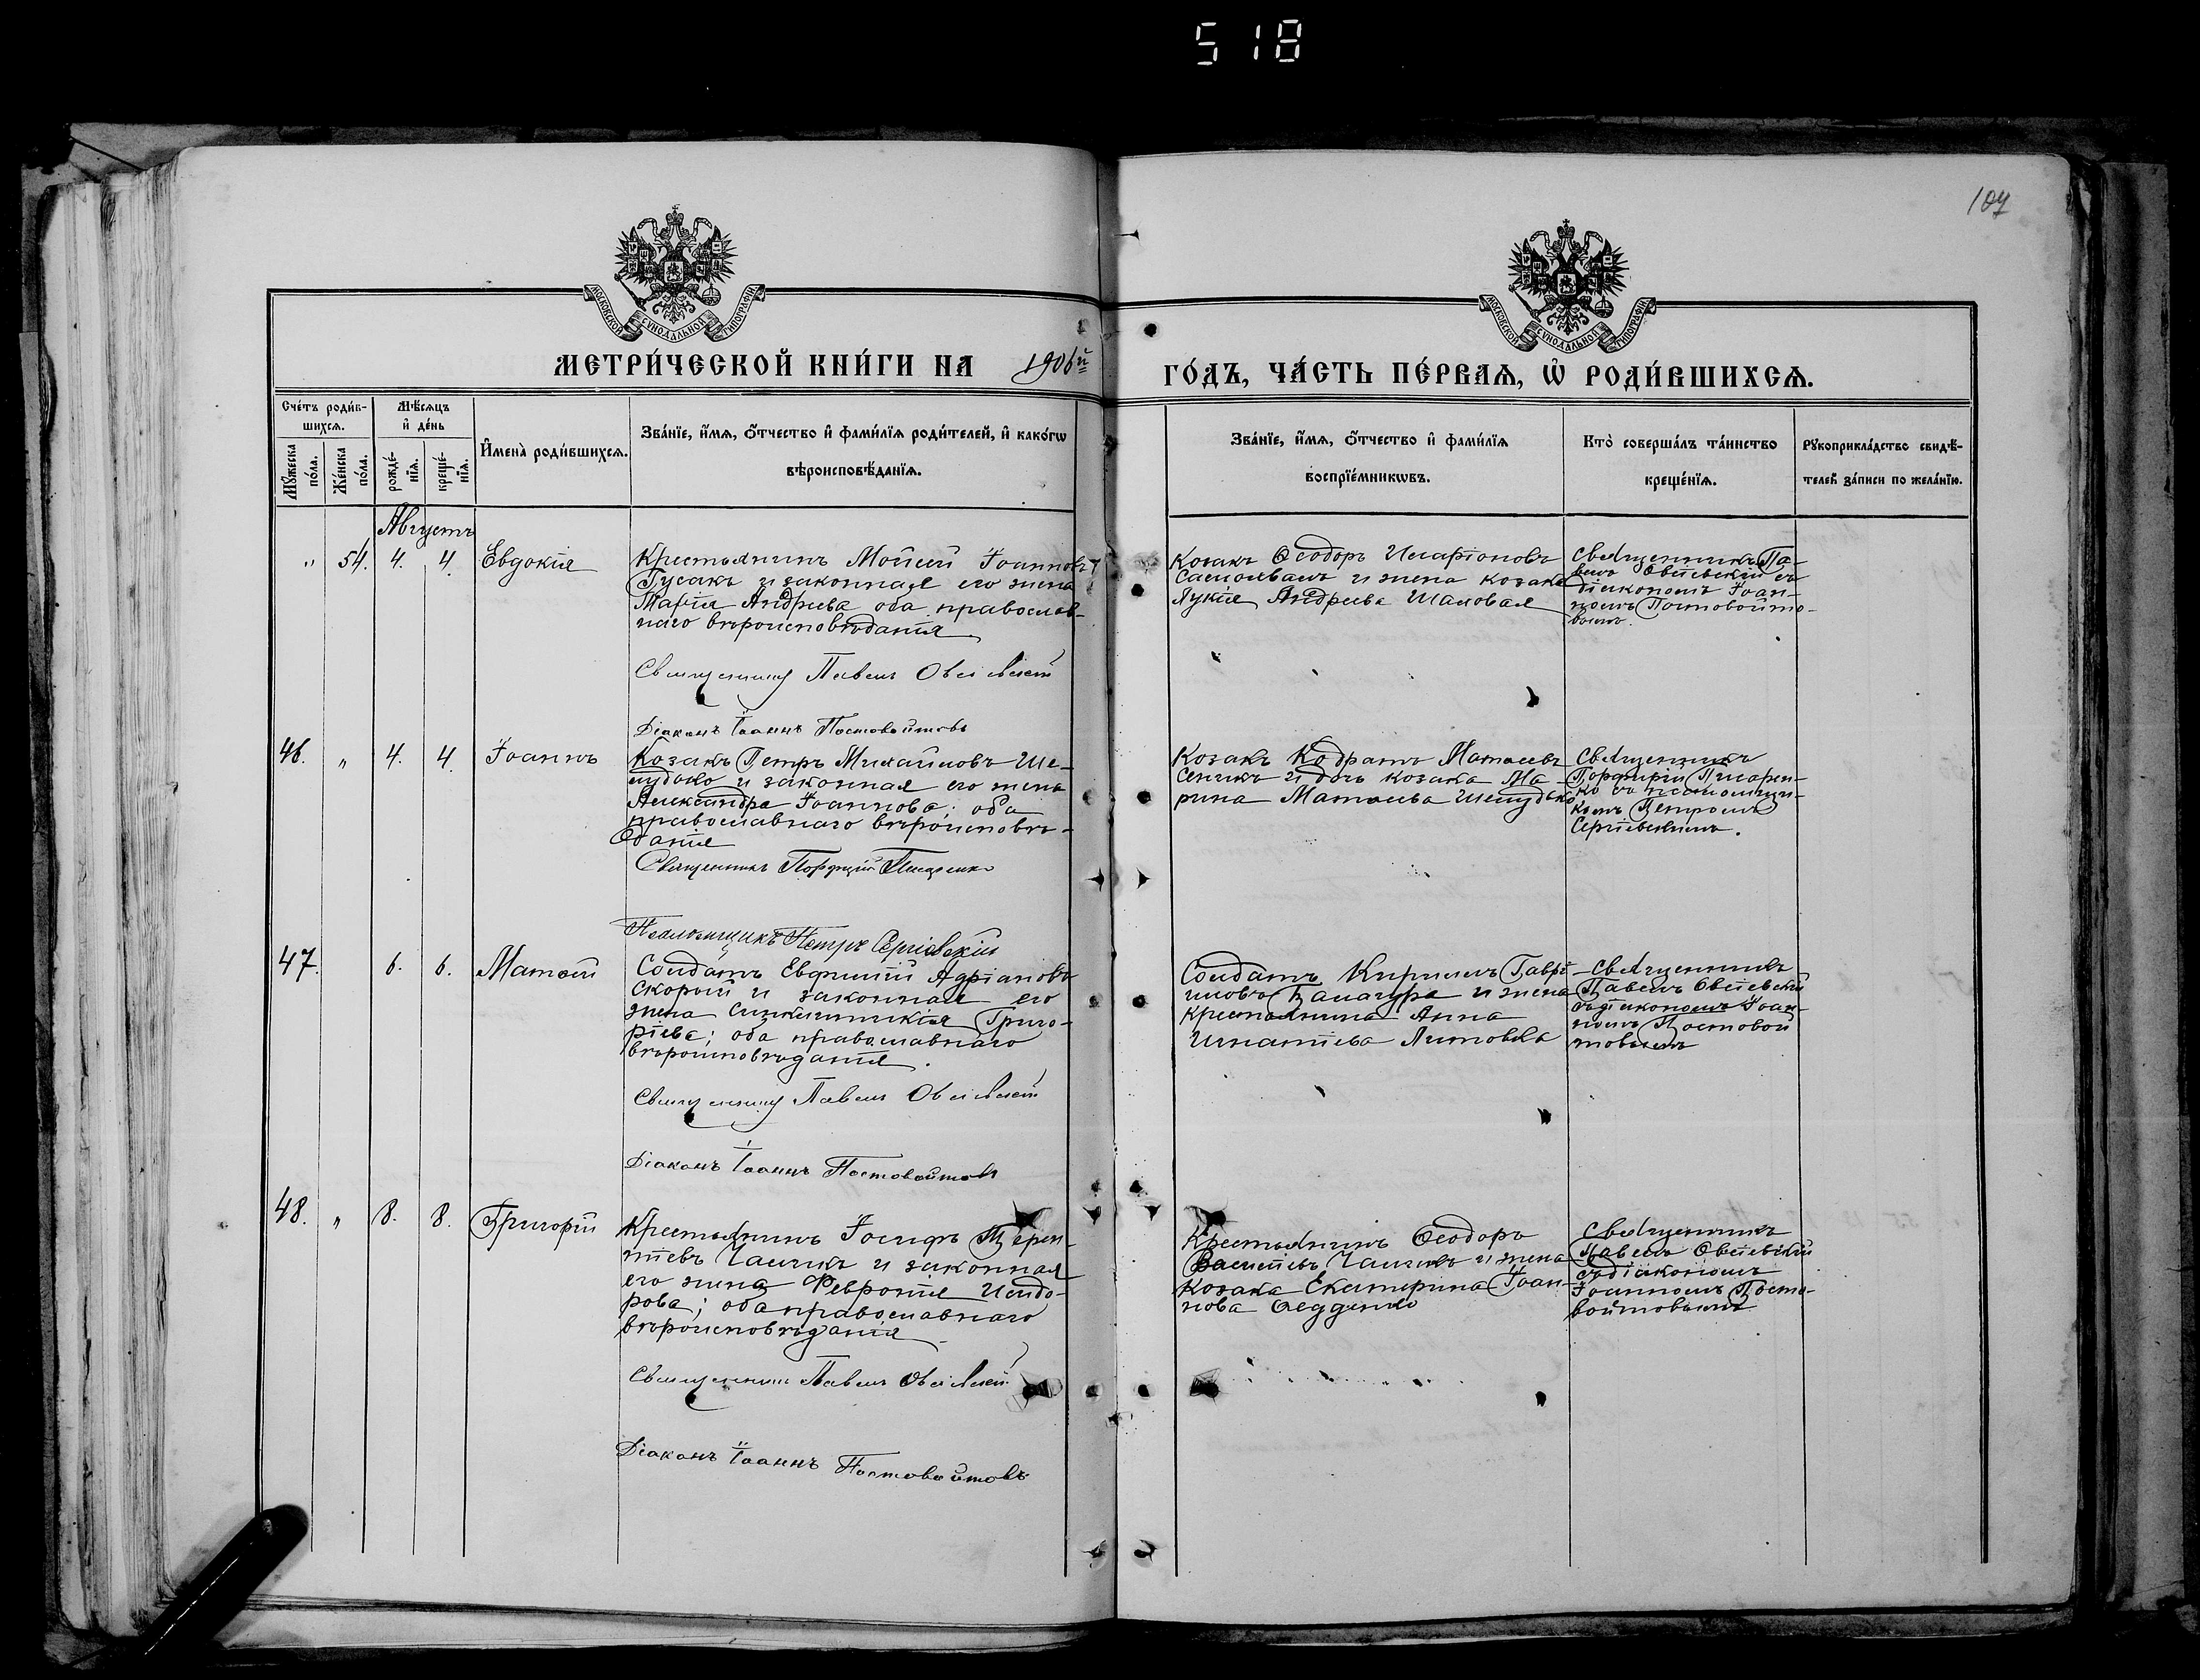 518
107
МОСКОВСКОЙ СѴНОДАЛЬНОЙ ТИПОГРАФІИ
МОСКОВСКОЙ СѴНОДАЛЬНОЙ ТИПОГРАФІИ
МЕТРИ́ЧЕСКОЙ КНИ́ГИ НА 1906й
ГО́ДЪ, ЧА́СТЬ ПЕ́РВАѦ, Ѡ҆ РОДИ́ВШИХСѦ.
Сче́тъ роди́в-
шихсѧ.
Мꙋ́жеска по́ла.
Же́нска по́ла.
Мѣ́сѧцъ
и҆ де́нь
рожде́-
нїѧ.
креще́-
нїѧ.
И҆мена̀ роди́вшихсѧ.
Зва́нїе, и҆́мѧ, ѻ҆́тчество и҆ фами́лїѧ роди́телей, и҆ како́гѡ
вѣроисповѣ́данїѧ.
Зва́нїе, и҆́мѧ, ѻ҆́тчество и҆ фами́лїѧ
воспрїе́мникѡвъ.
Кто̀ соверша́лъ та́инство
креще́нїѧ.
Рꙋкоприкла́дство свидѣ́-
телей за́писи по жела́нїю.
Августъ
" 54. 4. 4. Евдокія
Крестьянинъ Моисей Іоанновъ
Гусакъ и законная его жена
Марія Андреева оба православ-
наго вѣроисповѣданія
Священникъ Павелъ Овсіевскій
Діаконъ Іоаннъ Постовойтовъ
Козакъ Ѳеодоръ Иларіоновъ
и жена козака
Лукія Андреева Шаповал
Священникъ Па-
велъ Овсіевскій съ
діакономъ Іоан-
номъ Постовойто-
вымъ.
46. " 4. 4. Іоаннъ
Козакъ Петръ Михайловъ Ше-
лудько и законная его жена
Александра Іоаннова; оба
православнаго вѣроисповѣ-
данія
Священникъ Порфирій Писаренко
Псаломщикъ Петръ Сергіевскій
Козакъ Кодратъ Матѳеевъ
Сенчикъ и дочь козака Ма-
рина Матѳеева Шелудько
Священникъ
Порфирій Писарен-
ко съ псаломщи-
комъ Петромъ
Сергіевскимъ.
47. 6. 6. Матѳей
Солдатъ Евфимій Адріановъ
Скорый и законная его
жена Синклитикія Григо-
ріева; оба православнаго
вѣроисповѣданія.
Священникъ Павелъ Овсіевскій
Діаконъ Іоаннъ Постовойтовъ
Солдатъ Кириллъ Гаврі-
иловъ и жена
крестьянина Анна
Игнатіева Литовка
Священникъ
Павелъ Овсіевскій
съ діакономъ Іоан-
номъ Постовой
товымъ
48. " 8. 8. Григорій
Крестьянинъ Іосифъ Терен-
тіевъ Чалчикъ и законная
его жена Февронія Исидо-
рова; оба православнаго
вѣроисповѣданія
Священникъ Павелъ Овсіевскій
Діаконъ Іоаннъ Постовойтовъ
Крестьянинъ Ѳеодоръ
Василіевъ Чалчикъ и жена
козака Екатерина Іоан-
нова
Священникъ
Павелъ Овсіевскій
съ діакономъ
Іоанномъ Посто-
войтовымъ